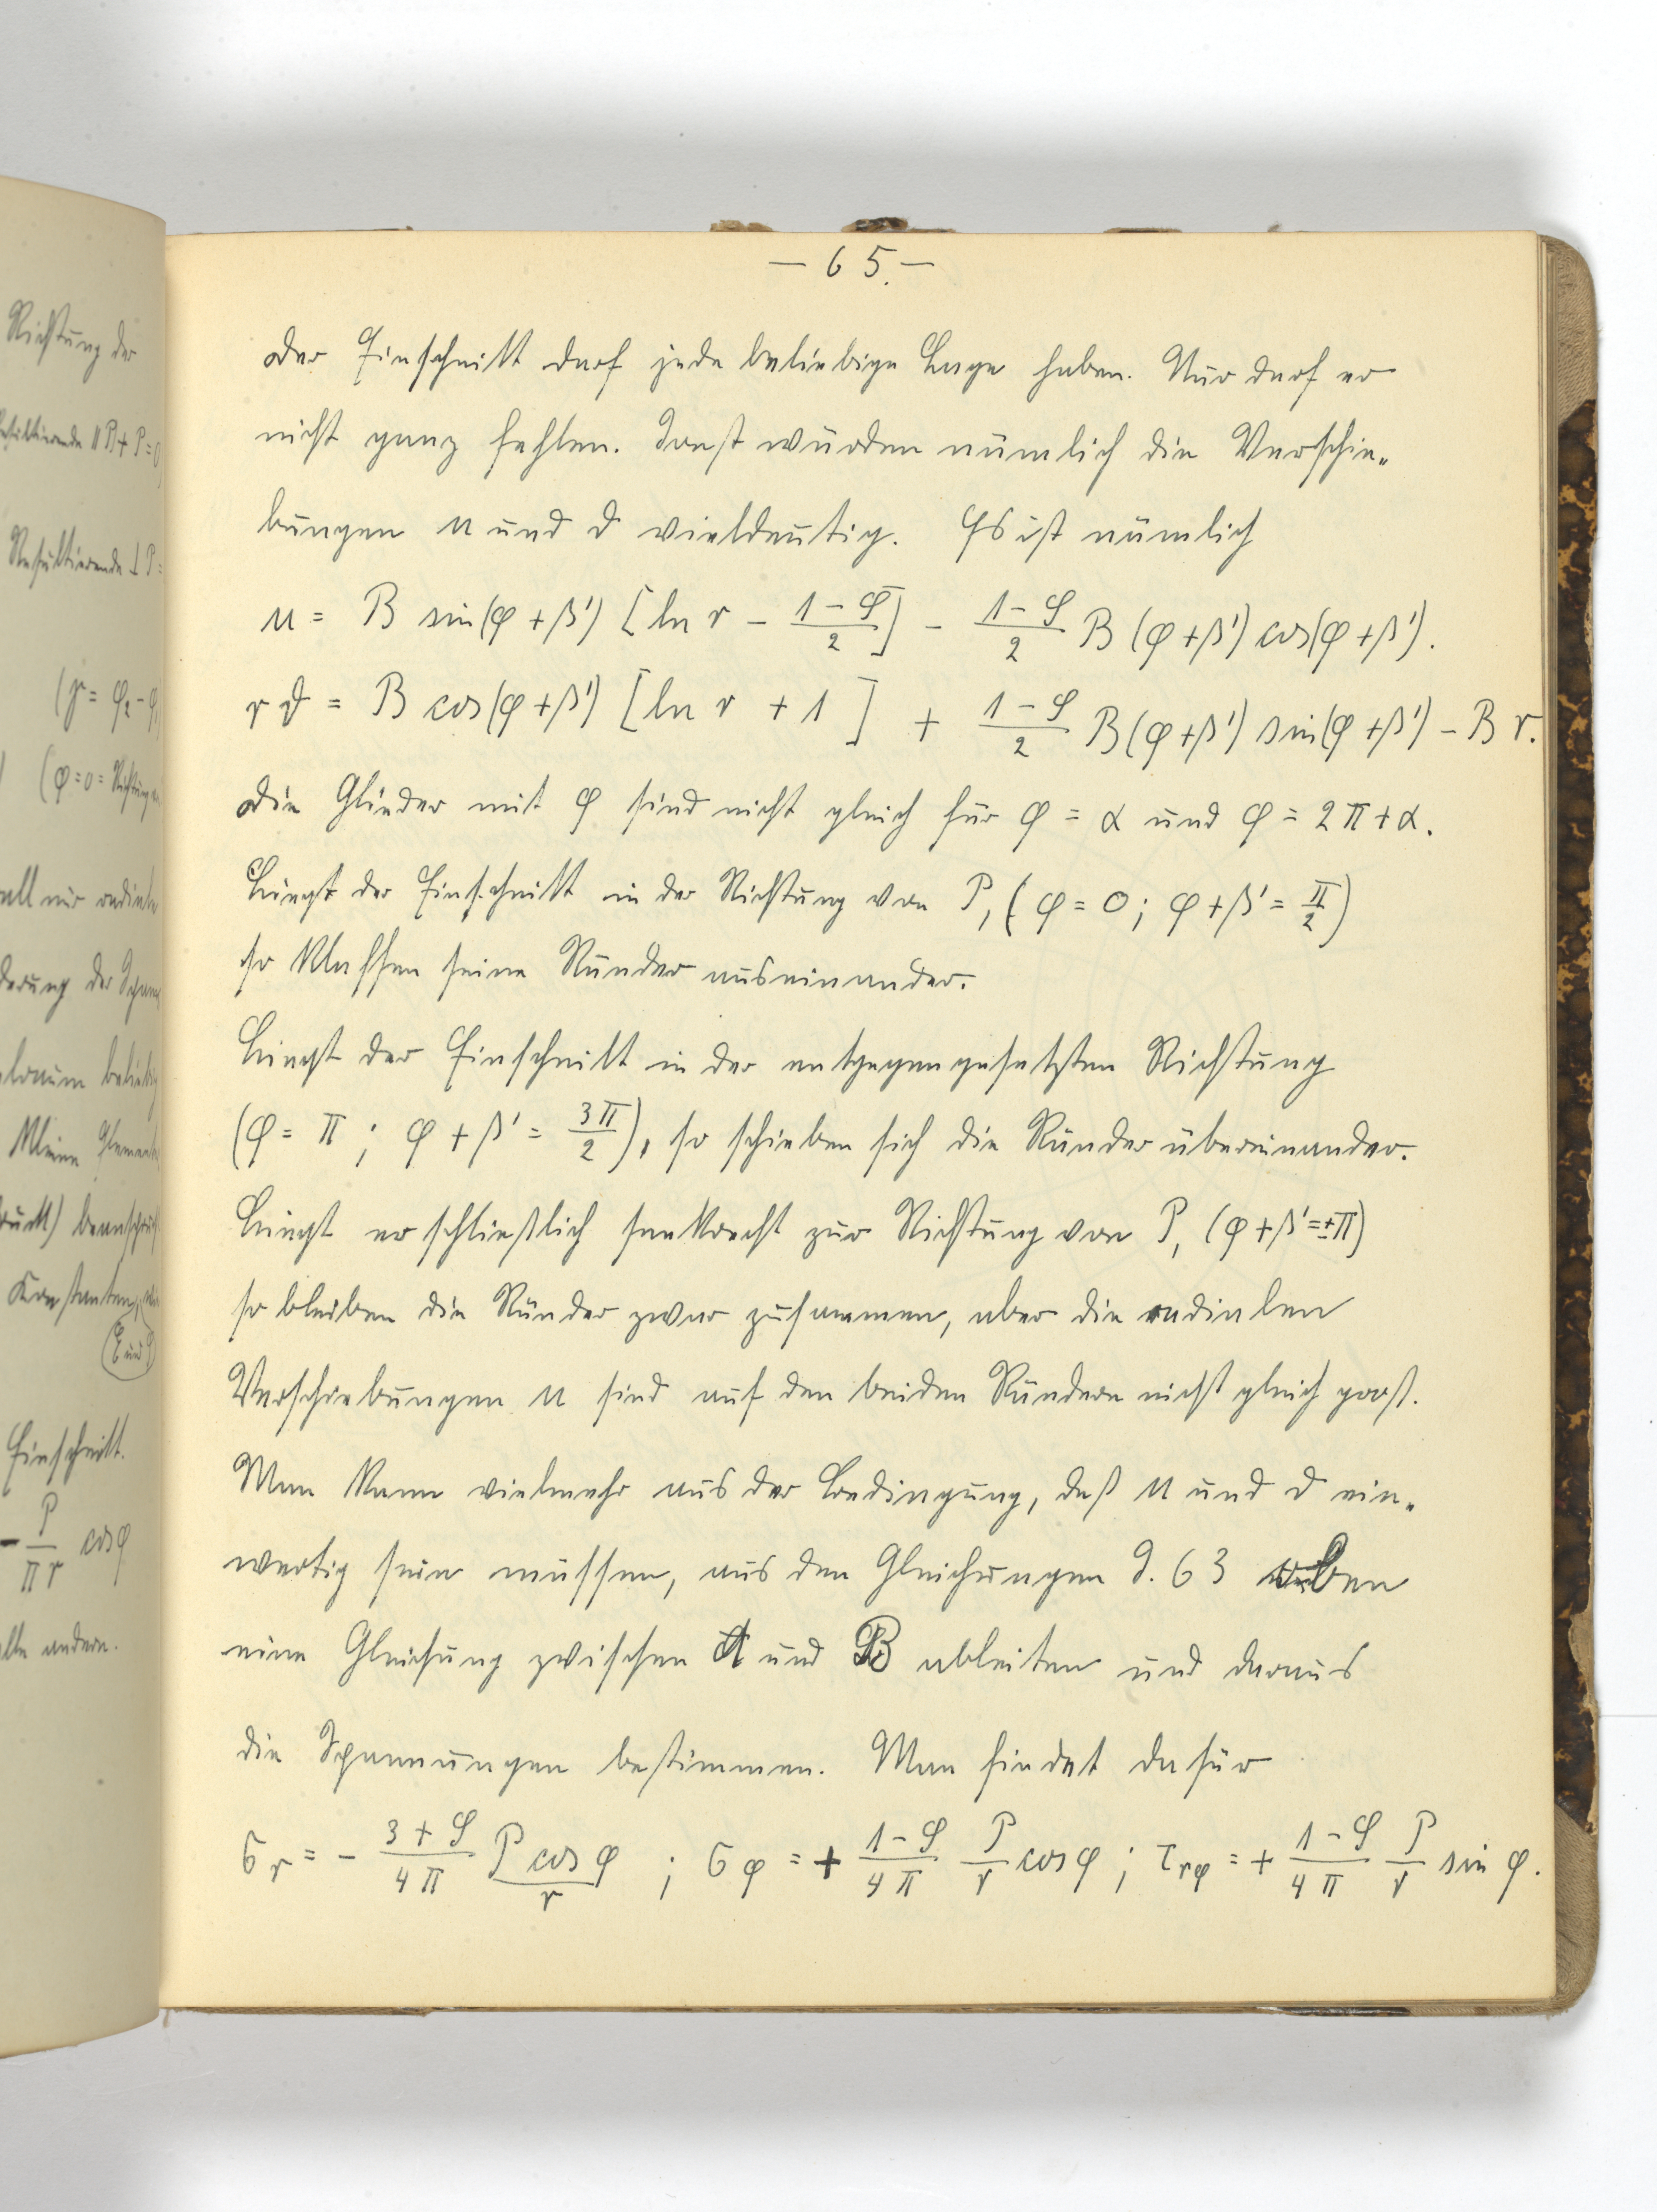 Richtung der
Resultierende ∥ P + P = 0
Resultierende ⊥ P =
(γ = φ₂ - φ₁
(φ = 0 = Richtung
all nur radiale
derung der Span
beliebig
kleine Elemente
druck) beansch
Konstanten,
Einschnitt.
- P/(π r) cos φ
alle andern.
— 65. —
Der Einschnitt darf jede beliebige Lage haben. Nur darf er
nicht ganz fehlen. Sonst würden nämlich die Verschie-
bungen u und ϑ vieldeutig. Es ist nämlich
u = B sin(φ + β') [ln r - (1-ϱ)/2] - (1-ϱ)/2 B (φ + β') cos(φ + β').
r ϑ = B cos(φ + β') [ln r + 1] + (1-ϱ)/2 B (φ + β') sin(φ + β') - B r.
Die Glieder mit φ sind nicht gleich für φ = α und φ = 2π + α.
Liegt der Einschnitt in der Richtung von P, (φ = 0; φ + β' = π/2)
so klaffen seine Ränder auseinander.
Liegt der Einschnitt in der entgegengesetzten Richtung
(φ = π; φ + β' = 3π/2), so schieben sich die Ränder übereinander.
Liegt er schließlich senkrecht zur Richtung von P, (φ + β' = ±π)
so bleiben die Ränder zwar zusammen, aber die radialen
Verschiebungen u sind auf den beiden Rändern nicht gleich groß.
Man kann vielmehr aus der Bedingung, daß u und ϑ ein-
wertig sein müssen, aus den Gleichungen S. 63 oben
eine Gleichung zwischen A und B ableiten und daraus
die Spannungen bestimmen. Man findet dafür
σ_r = - (3+ϱ)/(4π) (P cos φ)/r ; σ_φ = + (1-ϱ)/(4π) P/r cos φ ; τ_rφ = + (1-ϱ)/(4π) P/r sin φ.